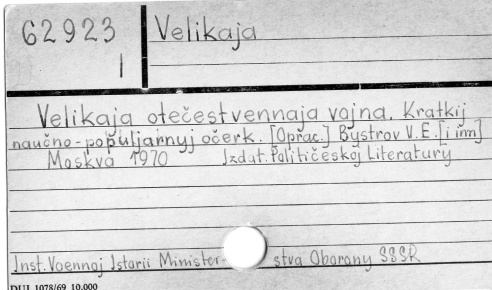 62923 Velikaja
I
Velikaja otečestvennaja vojna. Kratkij
naučno-populjarnyj očerk. [Oprac.] Bystrov V.E. [i inn]
Moskva 1970 Izdat. Političeskoj Literatury
Inst. Voennoj Istorii Minister- stva Oborony SSSR
DUJ 1078/69 10.000